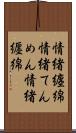 情緒纏綿
情緒てん
めん情緒
纒綿